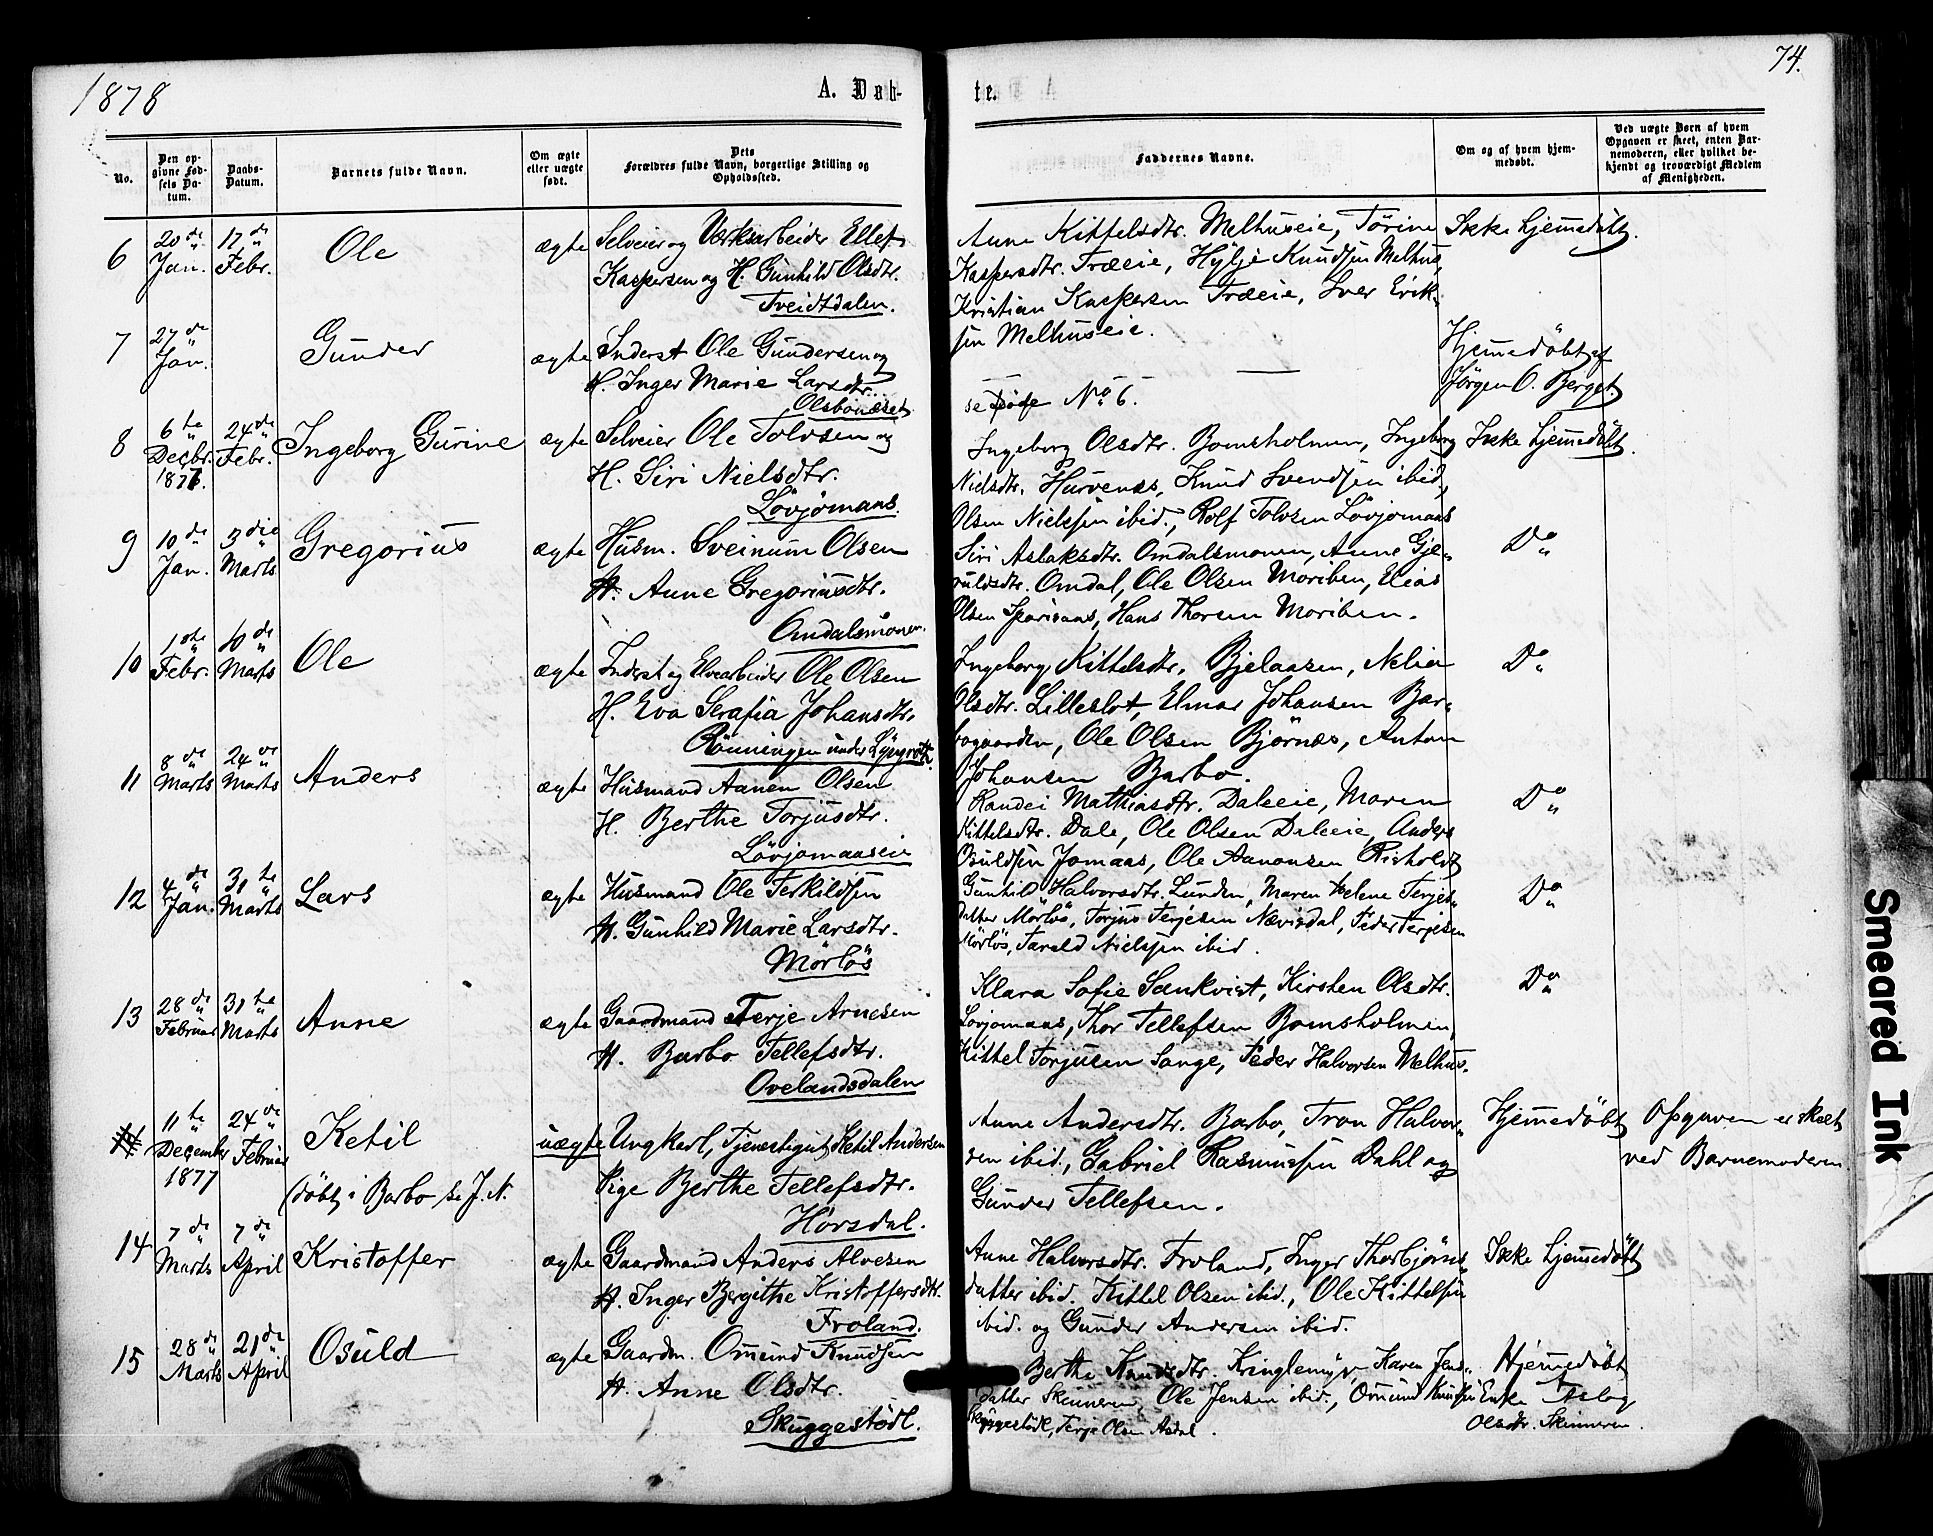 1878
A. Døb-
te.
74.
No.
Den opgivne Fødsels Datum.
Daabs-Datum.
Barnets fulde Navn.
Om ægte eller uægte født.
Dets Forældres fulde Navn, borgerlige Stilling og Opholdssted.
Faddernes Navne.
Om og af hvem hjemmedøbt.
Ved uægte Børn af hvem Opgaven er skeet, enten Barnemoderen, eller hvilket bekjendt og troværdigt Medlem af Menigheden.
6 20de Jan. 17de Febr. Ole ægte Selveier og Værksarbeider Ellef
Kaspersen og H. Gunhild Olsdtr.
Tveidtdalen.
Anne Kittelsdtr. Melhuseie, Tørine
Kaspersdtr. Træeie, Hylje Knudsen Melhus,
Kristian Kaspersen Træeie, Iver Erik-
sen Melhuseie.
Ikke hjemmedøbt.
7 27de Jan. Gunder ægte Inderst Ole Gundersen og
H. Inger Marie Larsdtr.
Olsbonæset
se No. 6.
Hjemmedøbt af
Jørgen O. Berget.
8 6te Decbr. 1877. 24de Febr. Ingeborg Gurine ægte Selveier Ole Tolvsen og
H. Siri Nielsdtr.
Løvjomaas.
Ingeborg Olsdtr. Bomsholmen, Ingeborg
Nielsdtr. Hurvenes, Knud Svendsen ibid,
Olsen Nielsen ibid., Rolf Tolvsen Løvjomaas
Ikke hjemmedøbt.
9 10de Jan. 3die Marts Gregorius ægte Husm. Sveinum Olsen
H. Anne Gregoriusdtr.
Omdalsmonen.
Siri Aslaksdtr. Omdalsmonen, Anne Gje-
ruldsdtr. Omdal, Ole Olsen Moriben, Elias
Olsen Sparsaas, Hans Thorsen Moriben.
Do
10 1ste Febr. 10de Marts Ole ægte Inderst og Elvearbeider Ole Olsen
H. Eva Serafia Johansdtr.
Rønningen under
Ingeborg Kittelsdtr. Bjelaasen, Nelia
Olsdtr. Lilleslot, Elmar Johansen Bar-
bogaarden, Ole Olsen Bjørnæs, Anton
Johansen Barbo.
Do
11 8de Marts 24de Marts Anders ægte Husmand Aanen Olsen
H. Berthe Torjusdtr.
Løvjomaaseie
Kandei Mathiasdtr. Daleeie, Maren
Kittelsdtr. Dale, Ole Olsen Daleeie, Anders
Osuldsen Jomaas, Ole Aanonsen Risholdt
Do
12 4de Jan. 31te Marts Lars ægte Husmand Ole Terkildsen
H. Gunhild Marie Larsdtr.
Mørløs
Gunhild Halvorsdtr. Lunden, Maren Helene Terjes-
datter Mørløs, Torjus Terjesen Nævisdal, Peder Terjesen
Mørløs, Tarald Nielsen ibid.
Do
13 28de Februar 31te Marts Anne ægte Gaardmand Terje Arnesen
H. Barbo Tellefsdtr.
Ovelandsdalen
Klara Sofie Sankvist, Kirsten Olsdtr.
Løvjomaas, Thor Tellefsen Bomsholmen,
Kittel Torjusen Sange, Peder Halvorsen Melhus.
Do
11te December 1877 24de Februar Ketil
(døbt i Barbo se J. N. uægte Ungkarl, Tjenestegut Ketil Andersen
Pige Berthe Tellefsdtr.
Hørsdal.
Anne Andersdtr. Barbo, Tron Halvor-
sen ibid., Gabriel Rasmussen Dahl og
Gunder Tellefsen.
Hjemmedøbt
Opgaven er skeet
ved Barnemoderen.
14 7de Marts 7de April Kristoffer ægte Gaardmand Anders Alvesen
H. Inger Bergithe Kristoffersdtr.
Froland.
Anne Halvorsdtr. Froland, Inger Thorbjørns-
datter ibid. Kittel Olsen ibid., Ole Kittelsen
ibid. og Gunder Andersen ibid.
Ikke hjemmedøbt
15 28de Marts 21de April Osuld ægte Gaardm. Omund Knudsen
H. Anne Olsdtr.
Skuggestødl.
Berthe Knudsdtr. Kringlemyr, Karen Jens-
datter Skinneren, Ole Jensen ibid., Omund Knudsen
Skuggestødl, Terje Olsen Asdal.
Hjemmedøbt
Enke Aslog
Olsdtr. Skinneren.
Smeared Ink